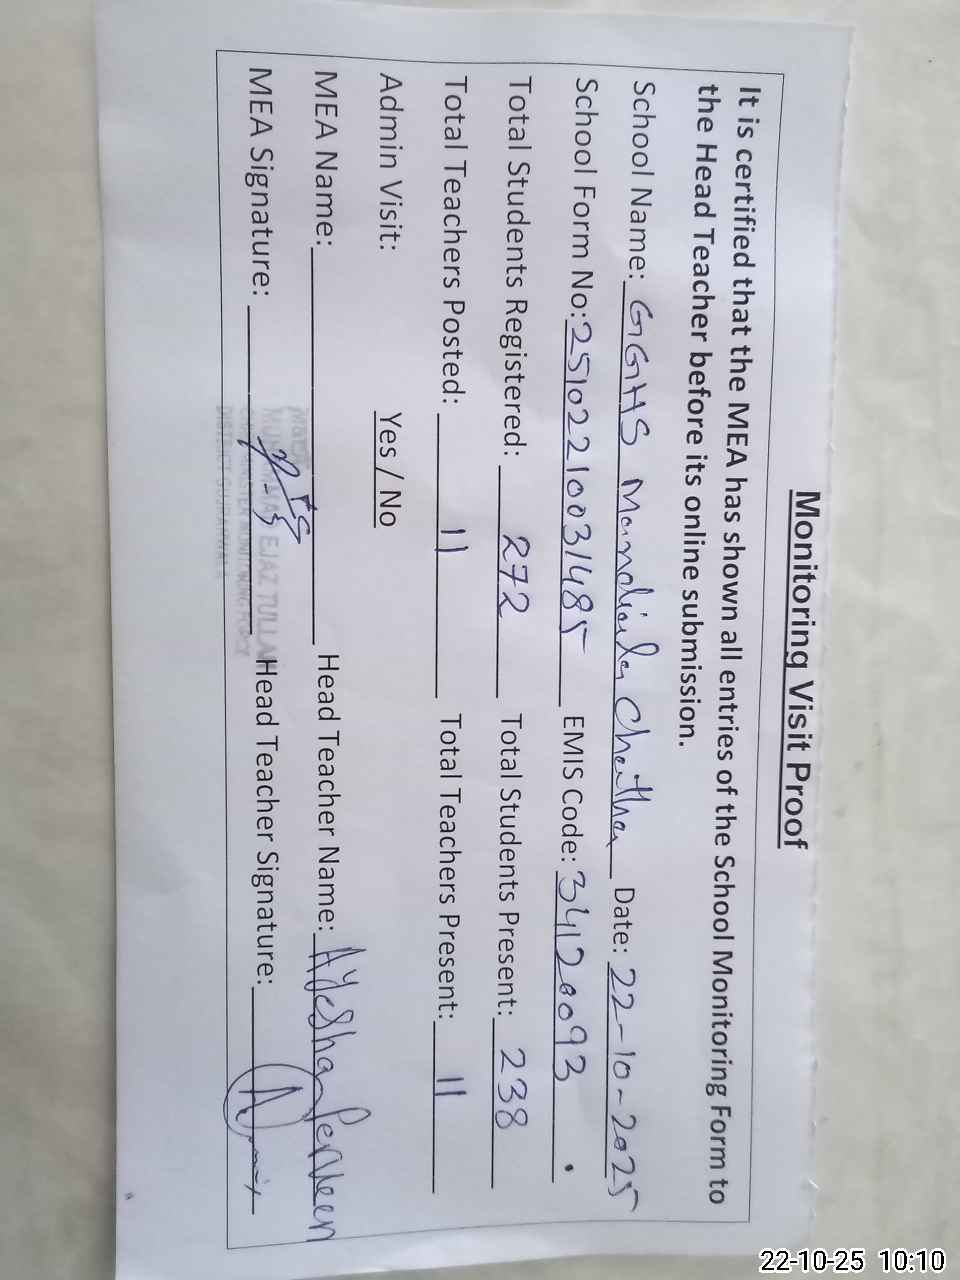 Monitoring Visit Proof
It is certified that the MEA has shown all entries of the School Monitoring Form to
the Head Teacher before its online submission.
School Name: GGHS Mandiala Chattha Date: 22-10-2025
School Form No: 25102210031485 EMIS Code: 34120093
Total Students Registered: 272 Total Students Present: 238
Total Teachers Posted: 11 Total Teachers Present: 11
Admin Visit: Yes / No
MEA Name: Head Teacher Name: Ayesha Perveen
MEA Signature: Head Teacher Signature:
EJAZ TULLA
MONITORING FORCE
DISTRICT GUJRANWALA
22-10-25 10:10